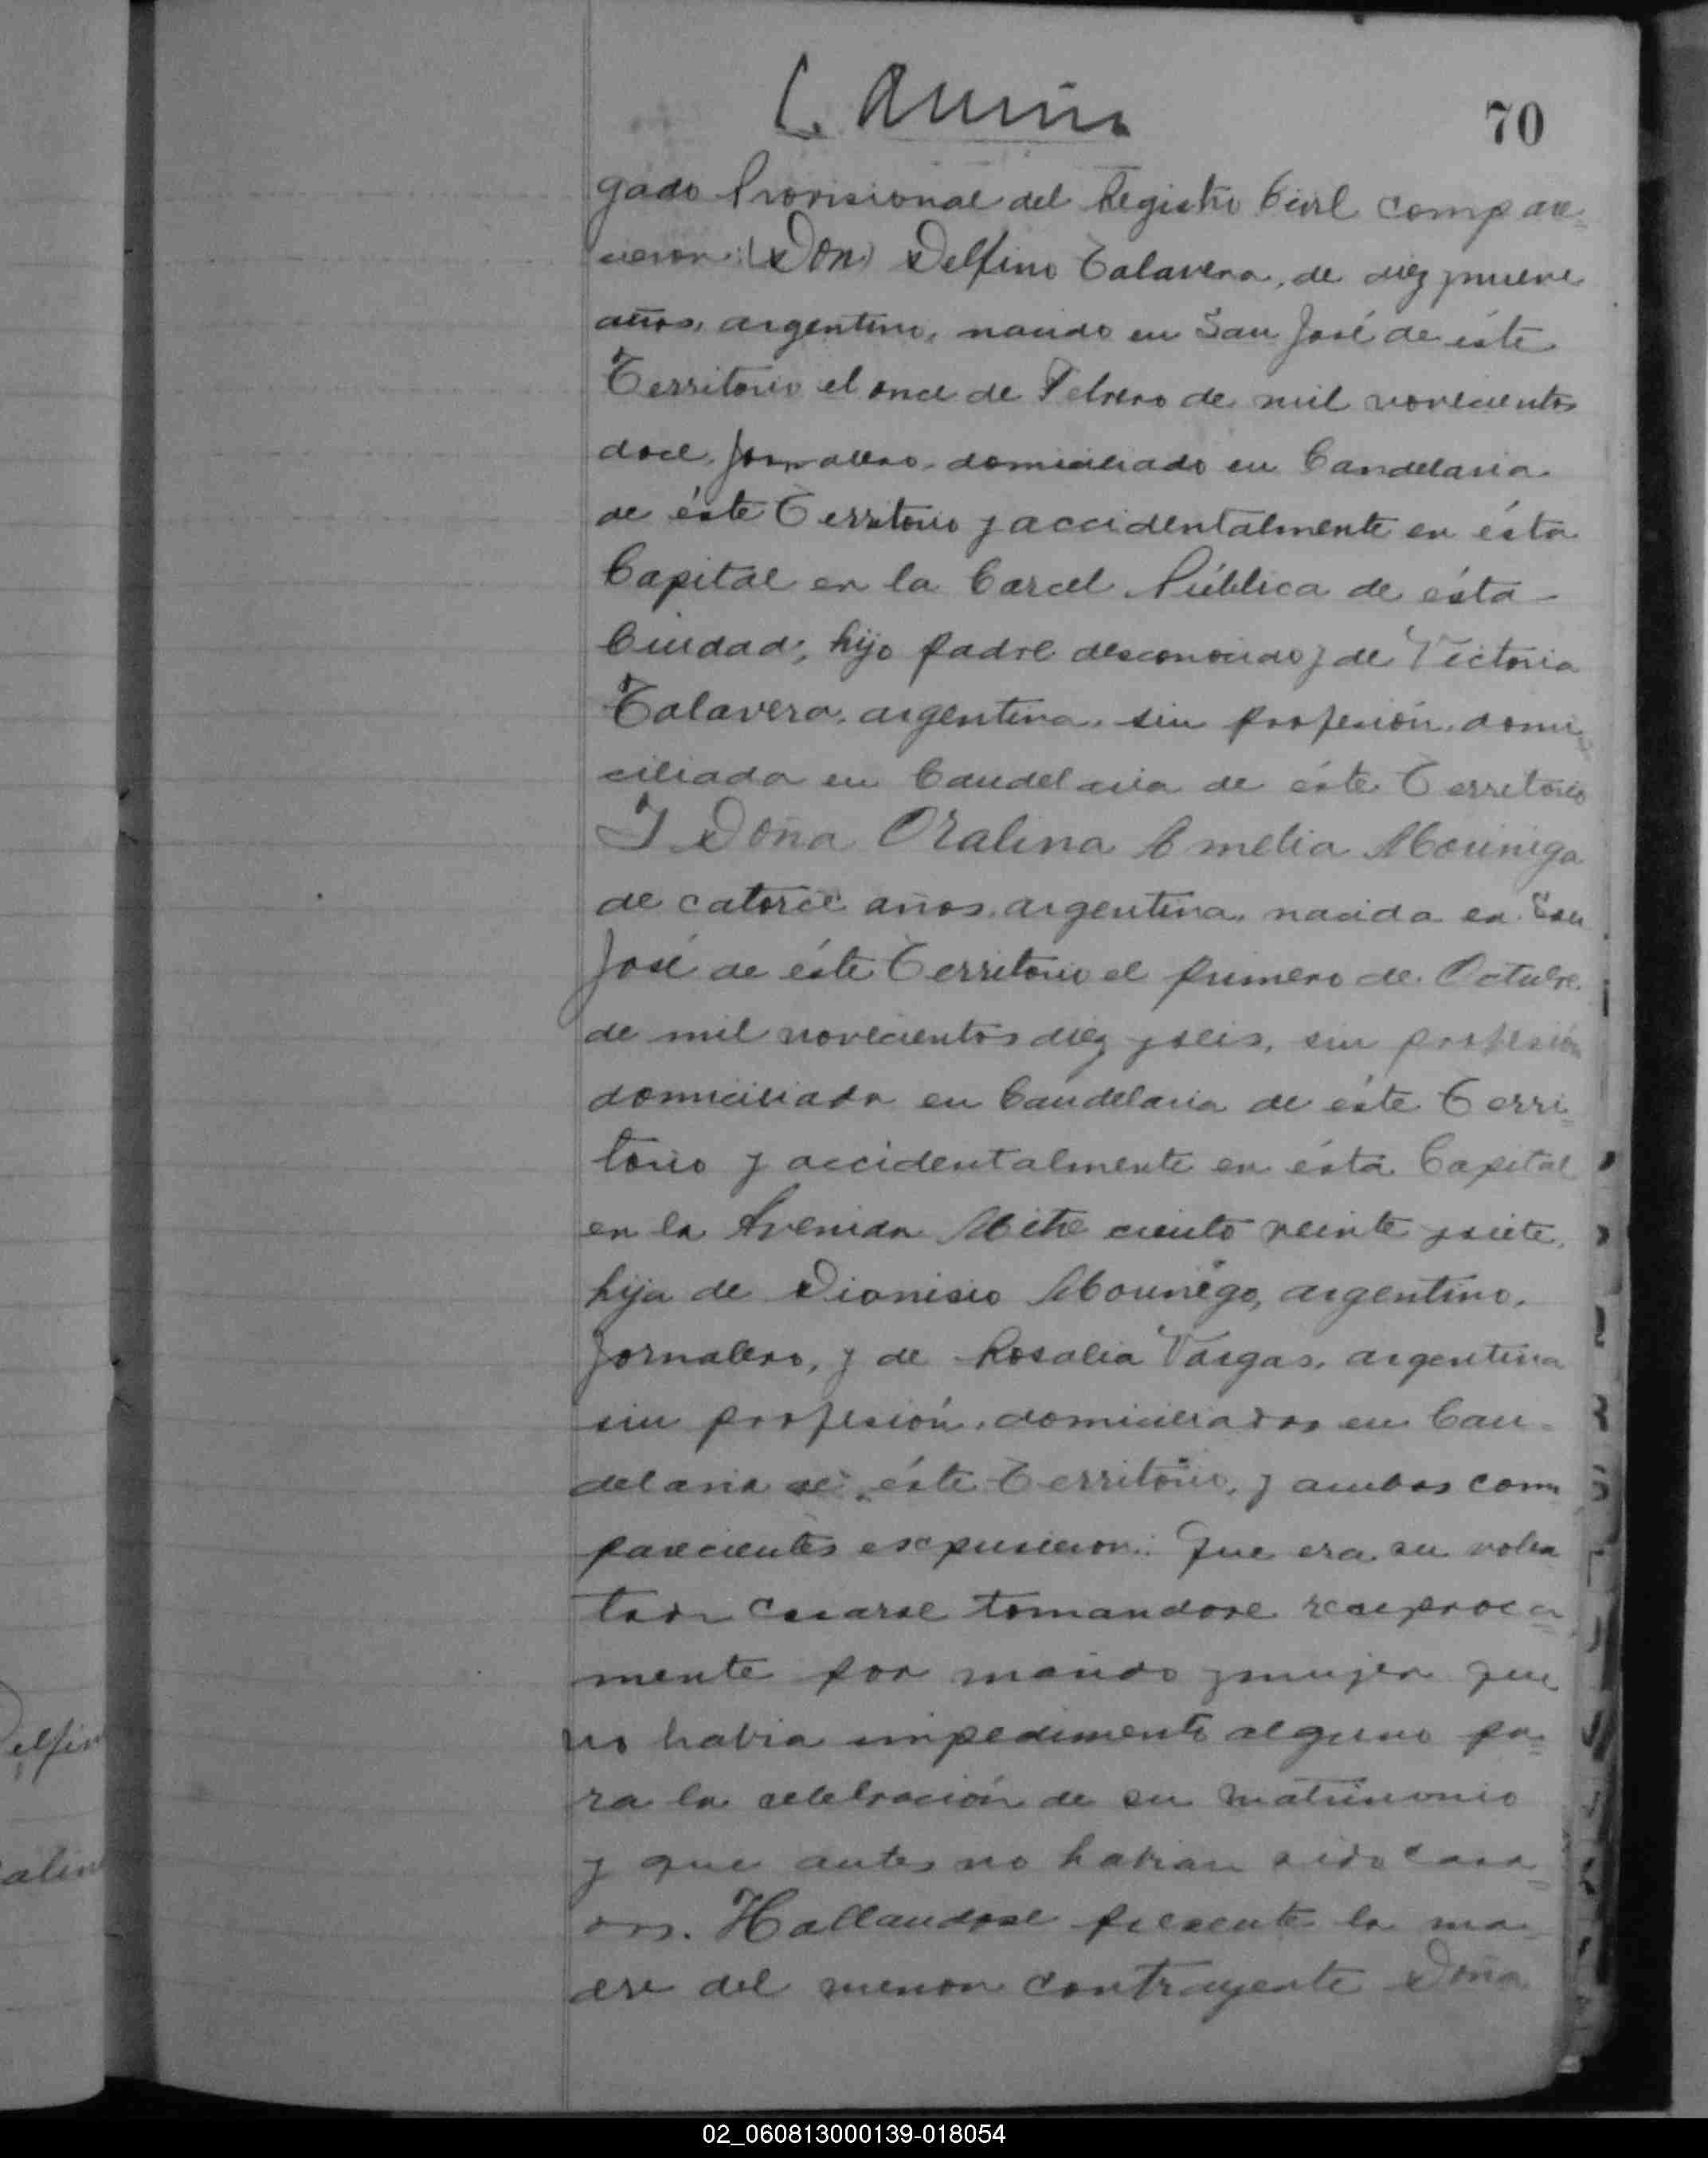 70
gado Provisional del Registro Civil compare=
cieron: (Don) Delfino Talavera, de diez y nueve
años, argentino, nacido en San José de éste
Territorio el once de Febrero de mil novecientos
doce, jornalero, domiciliado en Candelaria
de éste Territorio y accidentalmente en ésta
Capital en la Carcel Pública de ésta -
Ciudad; hijo padre desconocido y de Victoria
Talavera, argentina, sin profesión, domi=
ciliada en Candelaria de éste Territorio
Y Doña Oralina Amelia Mouniga
de catorce años, argentina, nacida en San
José de éste Territorio el primero de Octubre
de mil novecientos diez y seis, sin profesión
domiciliada en Candelaria de éste Terri=
torio y accidentalmente en ésta Capital
en la Avenida Mitre ciento veinte y siete,
hija de Dionisio Mouniego, argentino,
jornalero, y de Rosalia Vargas, argentina
sin profesión, domiciliados en Can-
delaria de éste Territorio, y ambos com
parecientes expusieron: Que era su volun
tad casarse tomandose reciproca=
mente por marido y mujer que
no habia impedimento alguno pa=
ra la celebración de su matrimonio
y que antes no habian sido casa=
dos. Hallandose presente la ma=
dre del menor contrayente Doña
elfin
alin
02_060813000139-018054